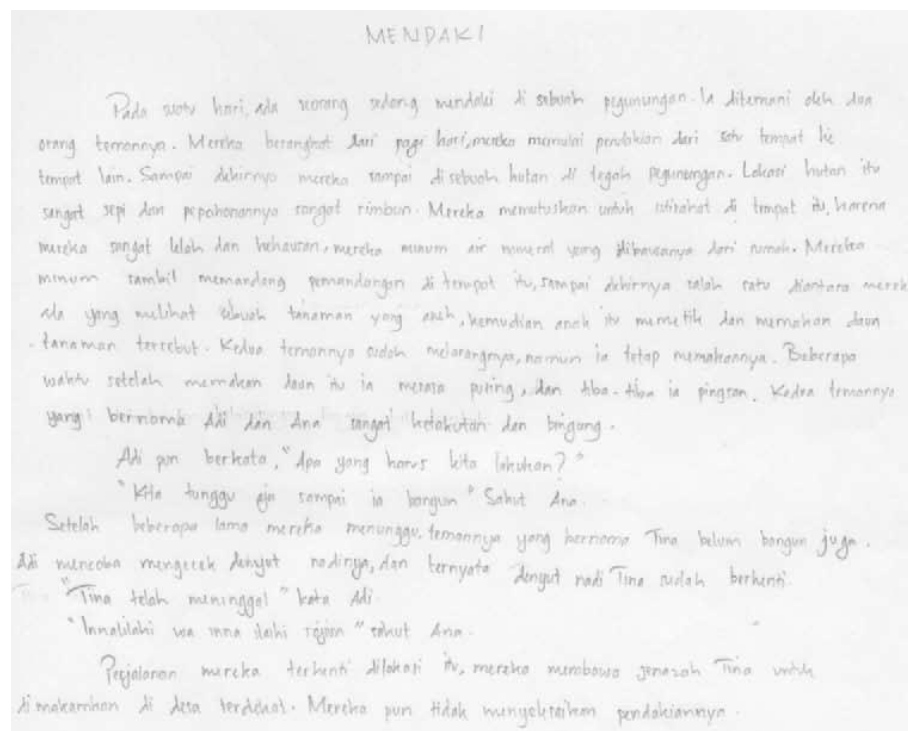 MENDAKI
Pada suatu hari, ada seorang sedang mendaki di sebuah pegunungan. Ia ditemani oleh dua
orang temannya. Mereka berangkat dari pagi hari, mereka memulai pendakian dari satu tempat ke
tempat lain. Sampai akhirnya mereka sampai disebuah hutan di tegah pegunungan. Lokasi hutan itu
sangat sepi dan pepohonannya sangat rimbun. Mereka memutuskan untuk istirahat di tempat itu, karena
mereka sangat lelah dan kehausan, mereka minum air mineral yang dibawanya dari rumah. Mereka
minum sambil memandang pemandangan di tempat itu, sampai akhirnya salah satu diantara merek
ada yang melihat sebuah tanaman yang aneh, kemudian anak itu memetik dan memakan daun
tanaman tersebut. Kedua temannya sudah melarangnya, namun ia tetap memakannya. Beberapa
waktu setelah memakan daun itu ia merasa pusing, dan tiba-tiba ia pingsan. Kedua temannya
yang bernama Adi dan Ana sangat ketakutan dan bingung.
Adi pun berkata, "Apa yang harus kita lakukan?"
"Kita tunggu aja sampai ia bangun" Sahut Ana.
Setelah beberapa lama mereka menunggu, temannya yang bernama Tina belum bangun juga.
Adi mencoba mengecek denyut nadinya, dan ternyata denyut nadi Tina sudah berhenti.
"Tina telah meninggal" kata Adi
"Innalilahi wa inna ilaihi rojiun" sahut Ana.
Perjalanan mereka terhenti dilokasi itu, mereka membawa jenazah Tina untuk
dimakamkan di desa terdekat. Mereka pun tidak menyelesaikan pendakiannya.